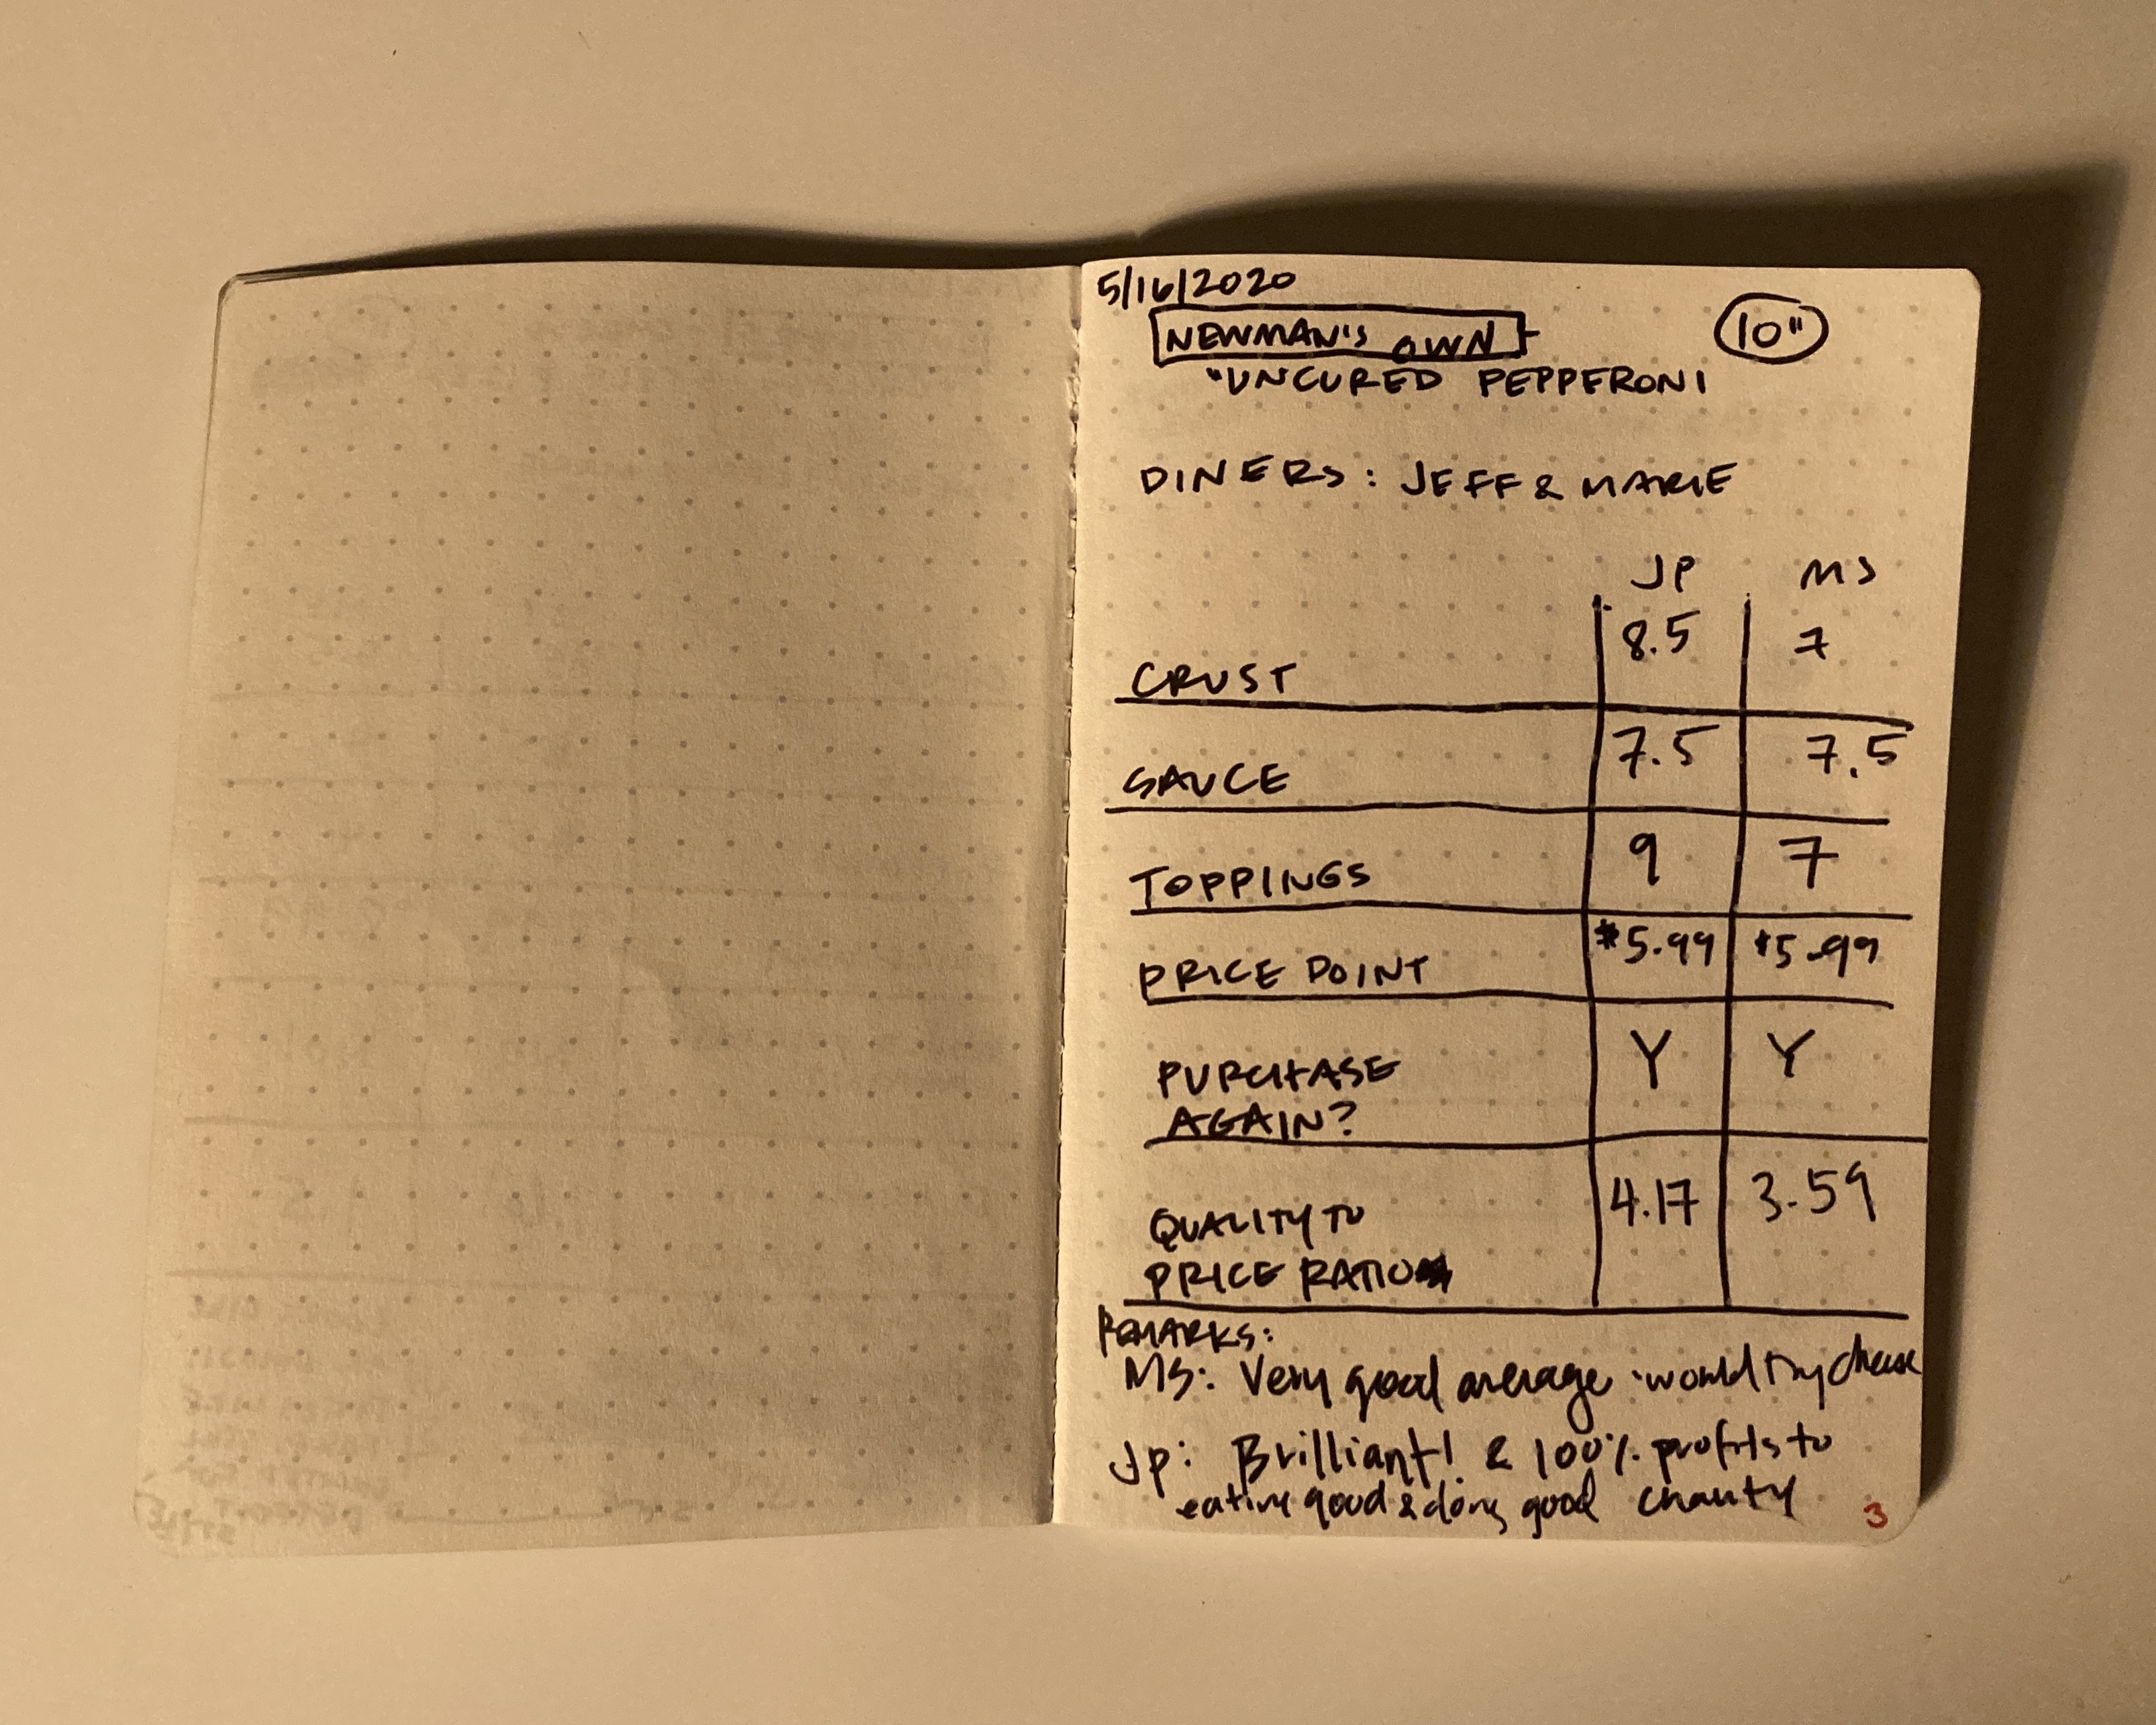 5/16/2020
NEWMAN'S OWN 10"
"UNCURED PEPPERONI
DINERS: JEFF & MARIE
JP MS
CRUST 8.5 7
SAUCE 7.5 7.5
TOPPINGS 9 7
PRICE POINT $5.99 $5.99
PURCHASE Y Y
AGAIN?
QUALITY TO 4.17 3.59
PRICE RATIO
REMARKS:
MS: Very good average would try cheese
JP: Brilliant! & 100% profits to
eating good & doing good charity
3